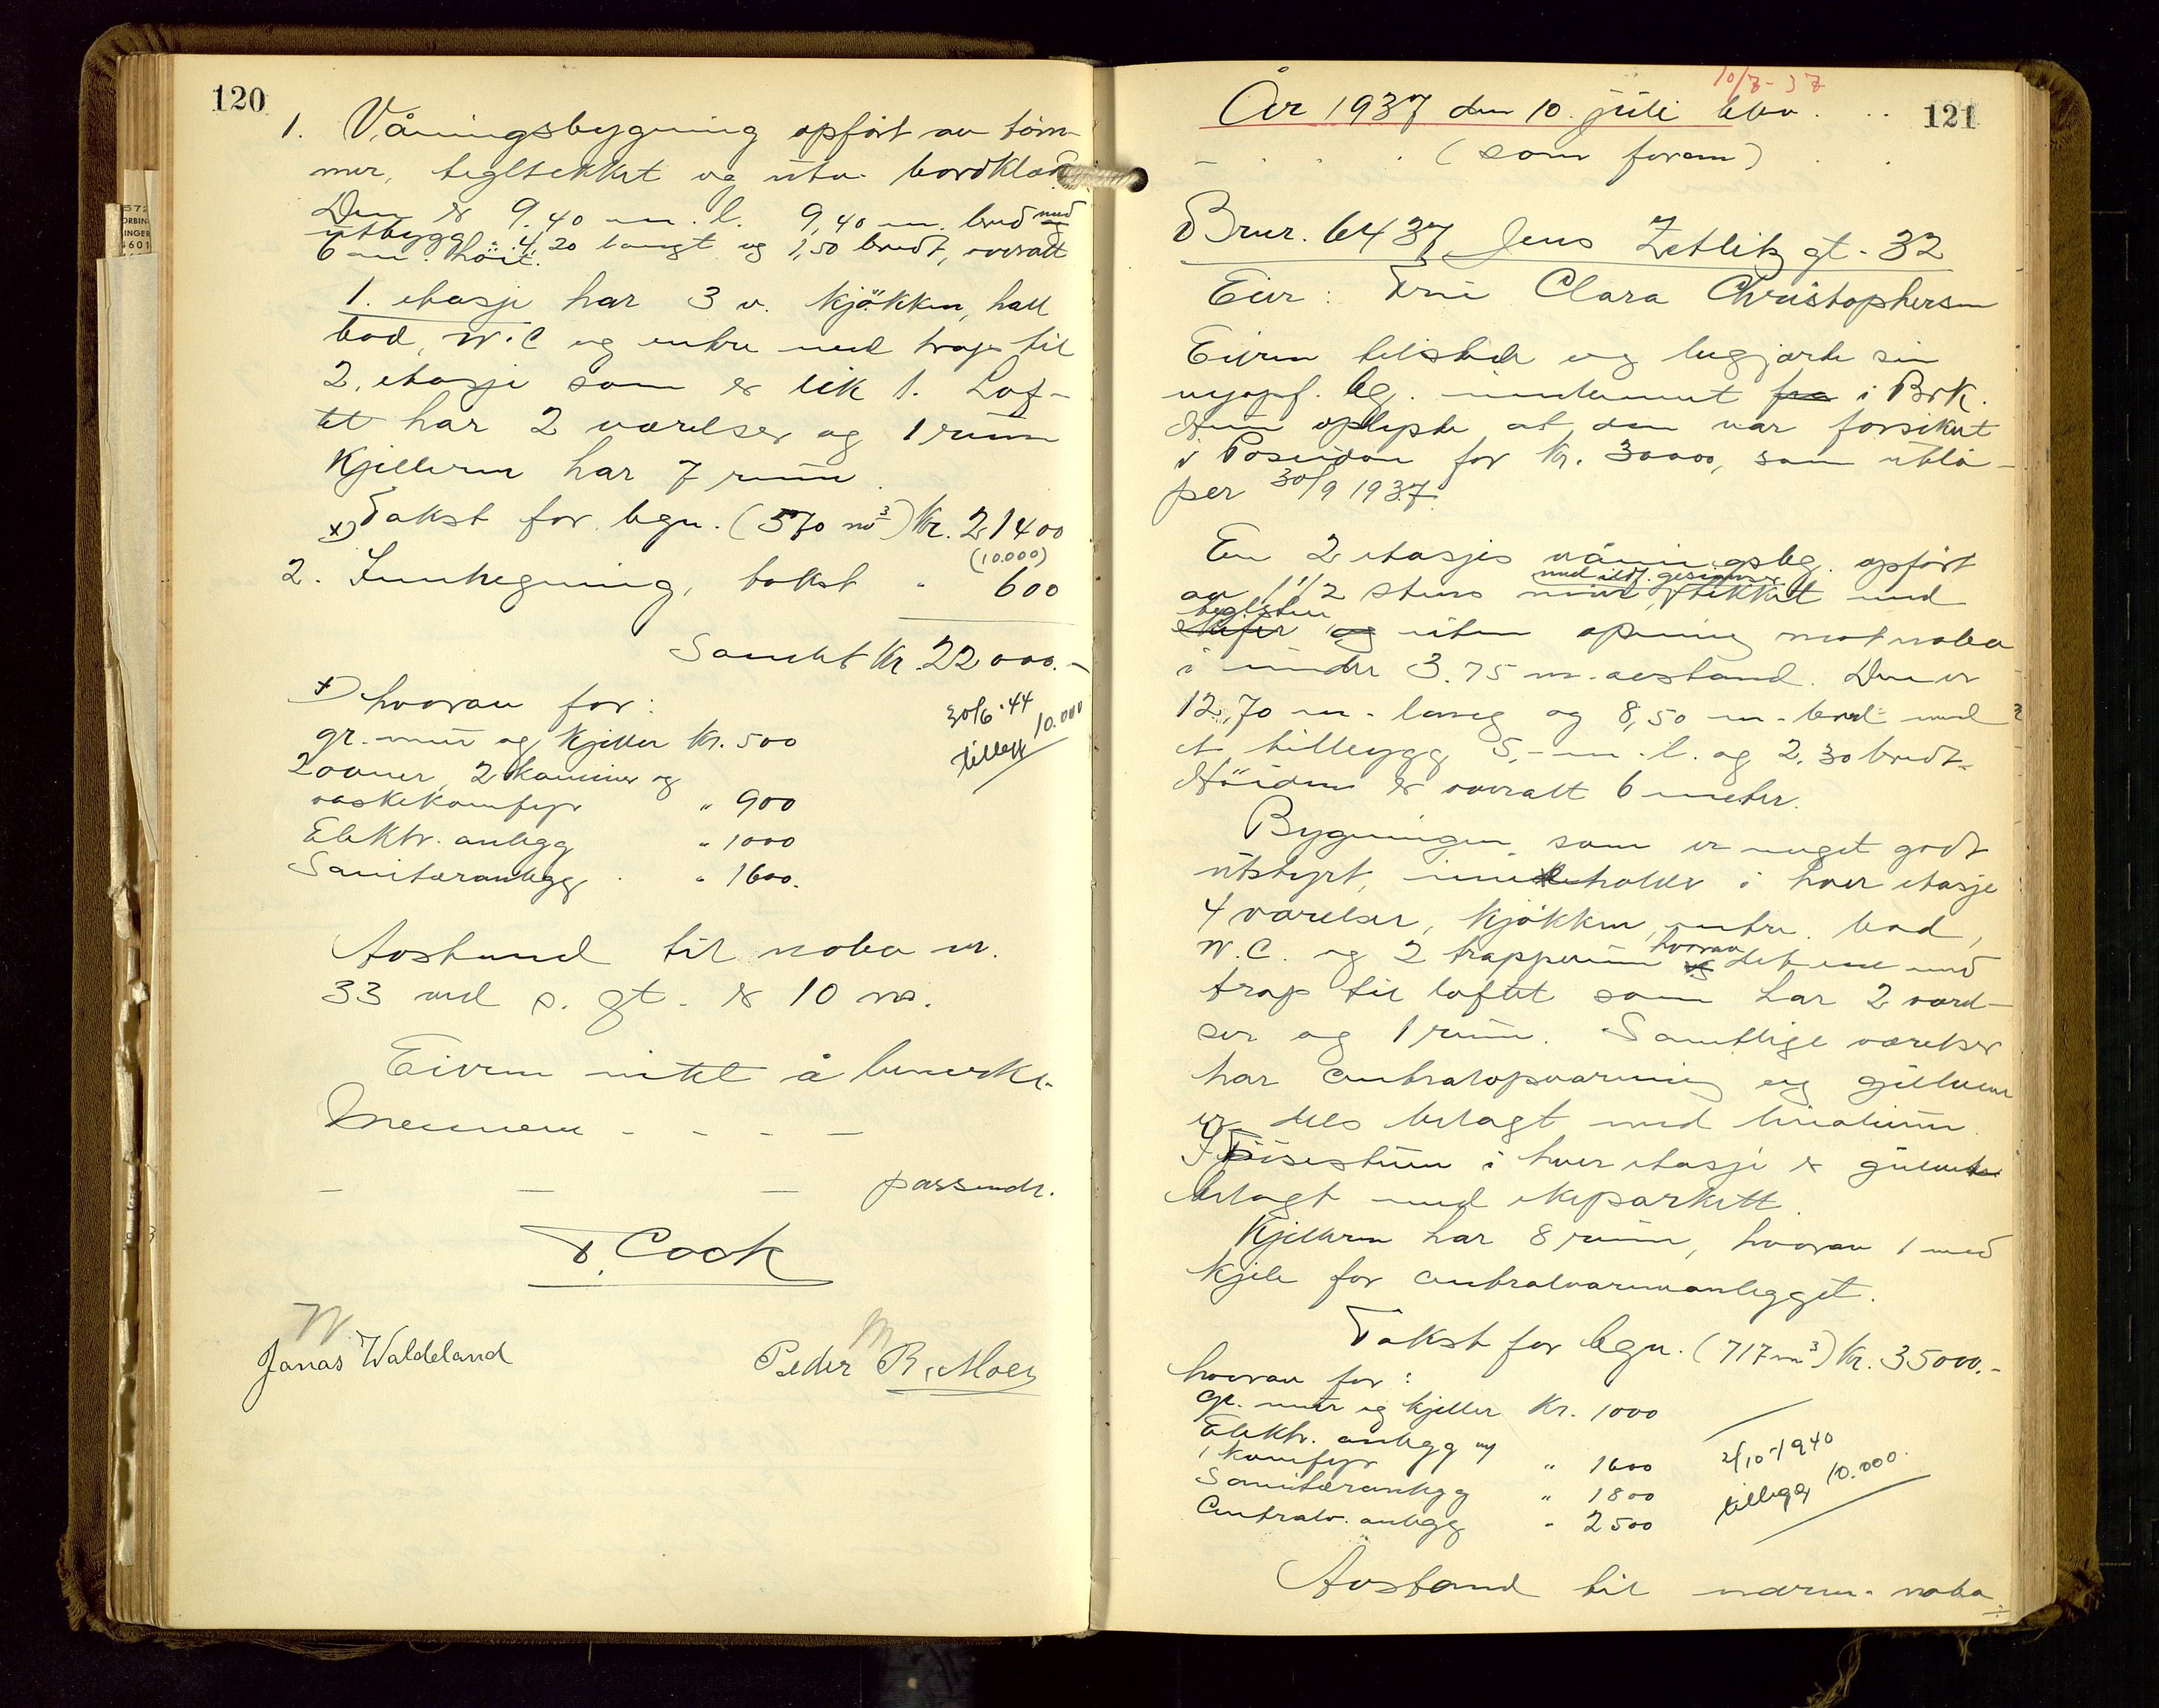 120
1. Våningsbygning opført av tøm-
mer, tegltekket og utv. bordklædt
Den er 9,40 m. l. 9,40 m. bred med
utbygg 4,20 langt og 1,50 bredt, overalt
6 m. høit.
1. etasje har 3 v. kjøkken, hall
bad, W.C og entre med trap til
2. etasje som er lik 1. Lof-
tet har 2 værelser og 1 rum
Kjelleren har 7 rum.
x) Takst for bygn. (570 m³) Kr. 21400
(10.000)
2. Innhegning, takst " 600
Samlet Kr. 22000.-
x) hvorav for:
gr. mur og kjeller Kr. 500
2 ovner, 2 kaminer og
vaskekomfyr " 900
Elektr. anlegg " 1000
Sanitæranlegg " 1600.
30/6-44
tillegg 10.000
Avstand til nabo nr.
33 ved s. gt. er 10 m.
Eieren intet å bemerke.
Mennene - - - -
- - - passende.
T. Cook
Jonas Waldeland
Peder R. Moen
121
10/7-37
År 1937 den 10. juli blev . . .
- . . . (som foran) . .
Brnr. 6437 Jens Zetlitz gt. 32
Eier: Frue Clara Christophersen
Eieren tilstede og begjærte sin
nyopf. bg. innlemmet fra i Brk.
Hun oplyste at den var forsikret
i Poseidon for kr. 30000, som utlø-
per 30/9 1937.
En 2 etasjes våningsbg. opført
med ildf. gesimser
av 1 1/2 stens mur, tekket med
teglsten
skifer og uten åpning mot nabo
i under 3.75 m. avstand. Den er
12,70 m. lang og 8,50 m. bred med
et tilbygg 5,- m. l. og 2,30 bredt.
Høiden er overalt 6 meter.
Bygningen, som er meget godt
utstyrt, inneholder i hver etasje
4 værelser, kjøkken, entre, bad,
W.C. og 2 trapperum hvorav det ene med
trap til loftet som har 2 værel-
ser og 1 rum. Samtlige værelser
har centralopvarming og gulvene
er dels belagt med linoleum.
I spisestuen i hver etasje er gulvet
belagt med ekeparkett.
Kjelleren har 8 rum, hvorav 1 med
kjele for centralvarmeanlegget.
Takst for bygn. (717 m³) Kr. 35000.-
hvorav for:
gr. mur og kjeller Kr. 1000
Elektr. anlegg og
1 komfyr " 1600
Sanitæranlegg " 1800
Centralv. anlegg " 2500
2/10-1940
tillegg 10.000.
Avstand til nærm. nabo